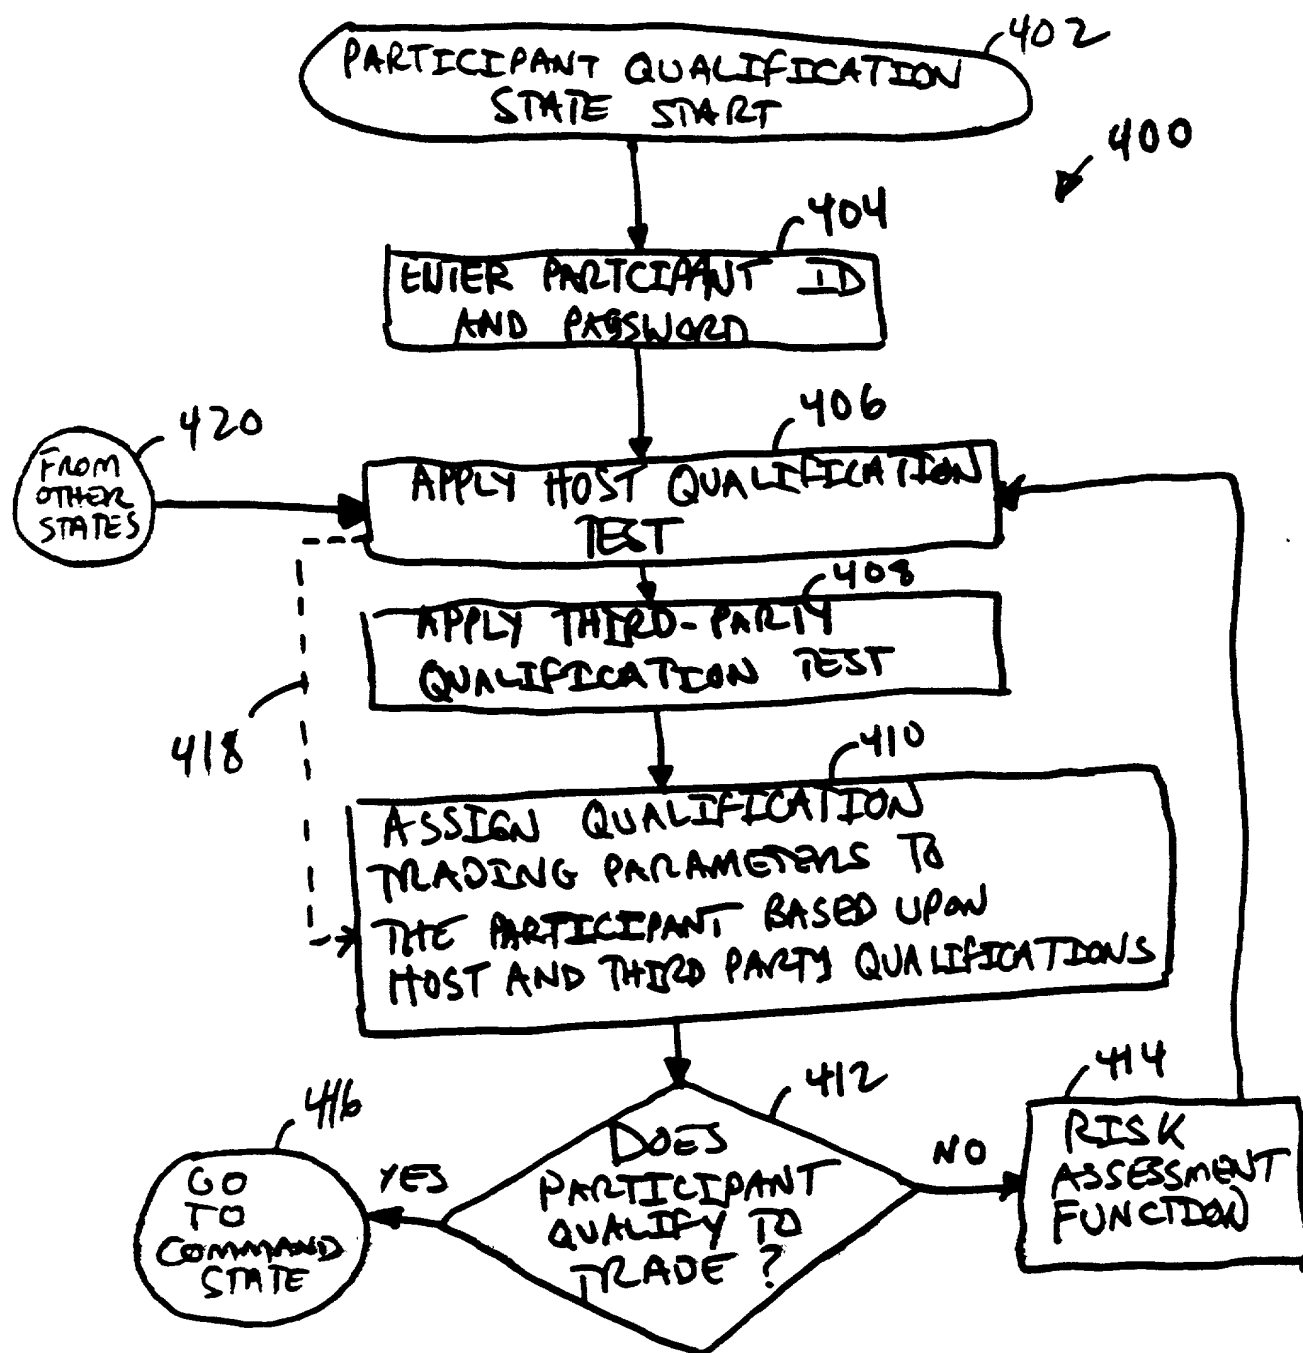 402
PARTICIPANT QUALIFICATION
STATE START
400
404
ENTER PARTCIPANT ID
AND PASSWORD
406
420
FROM
OTHER
STATES
APPLY HOST QUALIFICATION
TEST
408
APPLY THIRD-PARTY
QUALIFICATION TEST
418
410
ASSIGN QUALIFICATION
TRADING PARAMETERS TO
THE PARTICIPANT BASED UPON
HOST AND THIRD PARTY QUALIFICATIONS
412
414
416
DOES
PARTICIPANT
QUALIFY TO
TRADE?
YES
NO
GO
TO
COMMAND
STATE
RISK
ASSESSMENT
FUNCTION